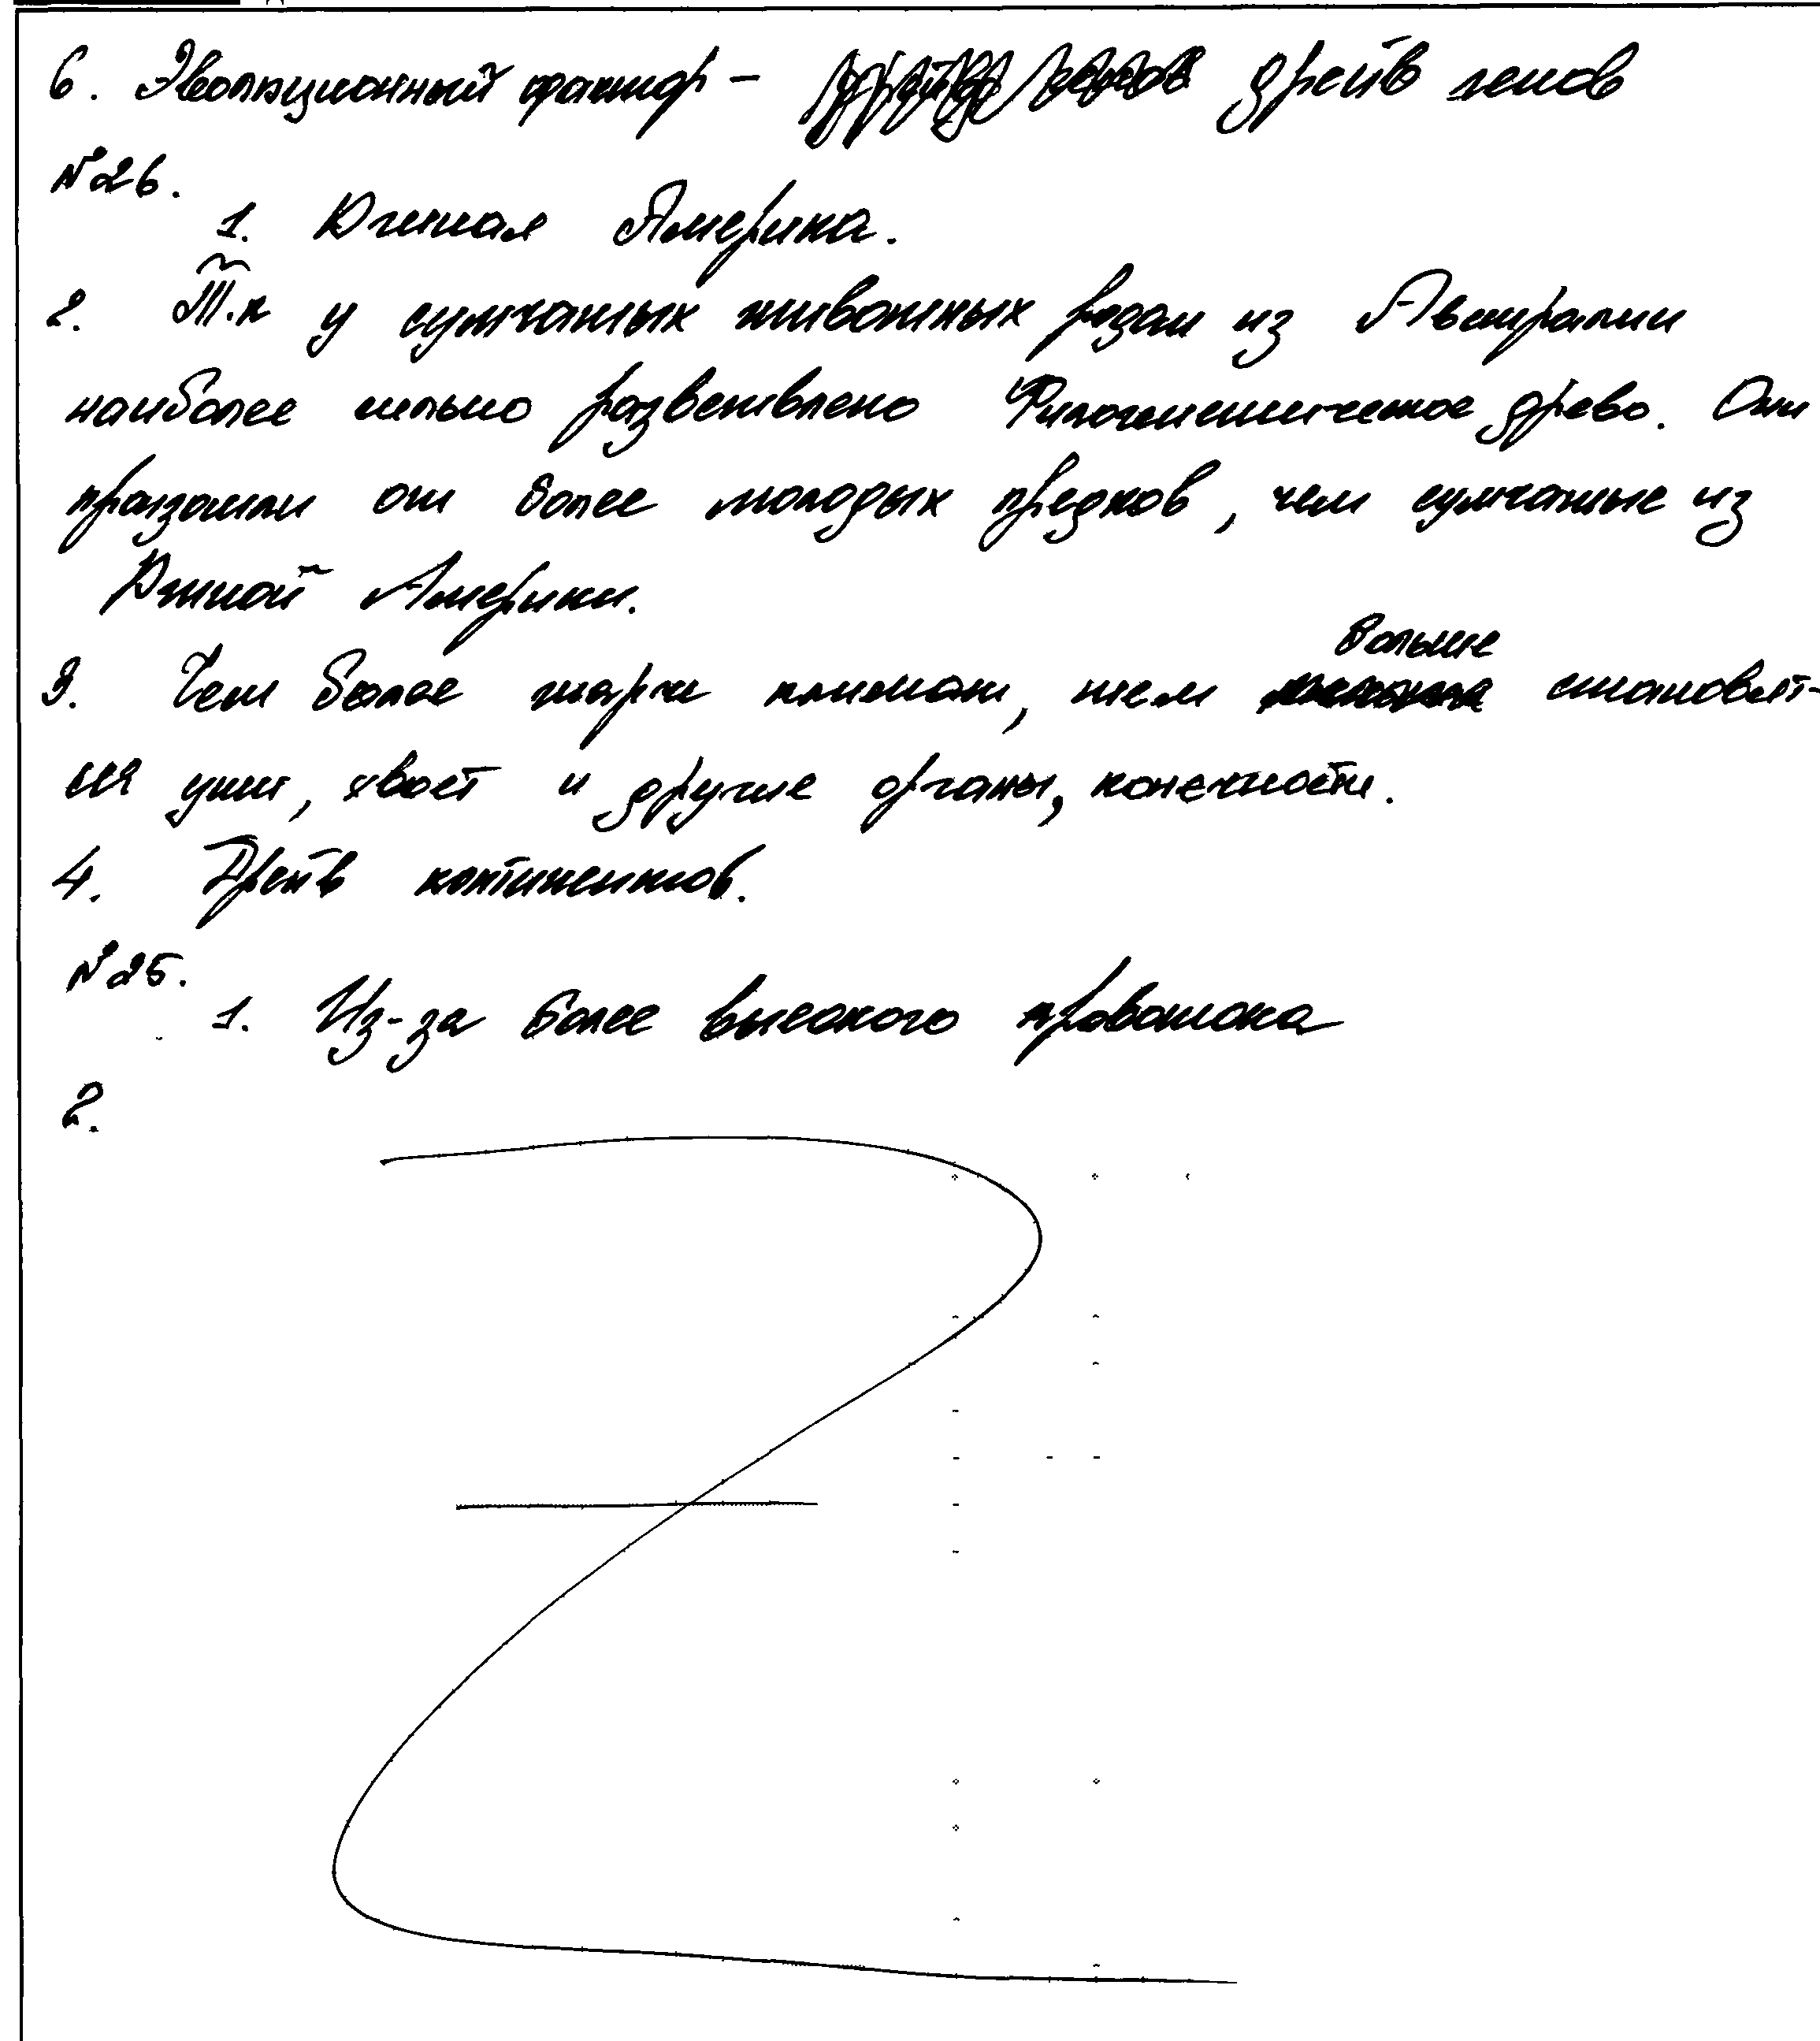 6. Эволюционный фактор - дрейф генов
№26.
1. Южная Америка.
2. Т.к у сумчатых животных родом из Австралии
наиболее сильно разветвлено Филогенетическое древо. Они
произошли от более молодых предков, чем сумчатые из
Южной Америки.
больше
3. Чем более жарче климат, тем становят-
ся уши, хвост и другие органы, конечности.
4. Дрейф континентов.
№25.
1. Из-за более высокого кровотока
2.